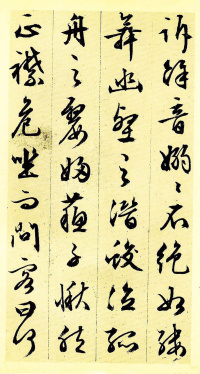 訴餘音嫋〻不絕如縷
舞幽壑之潛蛟泣孤
舟之嫠婦蘇子愀然
正襟危坐而問客曰何